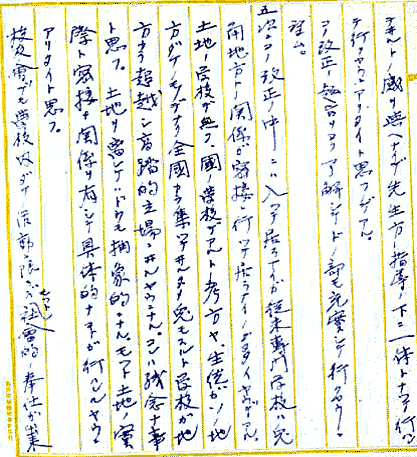 ナホルト威リ無ヘナイデ先生方ノ指導ノ下ニ一体トナッテ行ッ
テ行クヤウデアリタイト思フノデアル。
コノ改正ノ趣旨ヲヨク了解シテドノ部モ充実シテ行クヤウニ
望ム。
五、次ニコノ改正ノ中ニハ入ッテ居ラナイガ従来専門学校ハ兎
角地方ト関係ガ密接ニ行ッテ居ラナイノガ多イヤウデアル。
土地ノ学校デ無ク、国ノ学校デアルトノ考方ヤ、生徒ガソノ地
方ダケノモノデナク全国カラ集ッテ来ルタメ兎モスルト学校ガ地
方カラ超越シ高踏的立場ニ在ルヤウニナル。コレハ残念ナ事
ト思フ。土地ヲ離レテハドウモ抽象的ニナル。モット土地ノ実
際ト密接ナ関係ヲ有シテ具体的ナコトガ行ハレルヤウニ
アリタイト思フ。
校友会ガタダ学校内ダケノ活動ニ限ラズ社会的ノ奉仕ガ出来